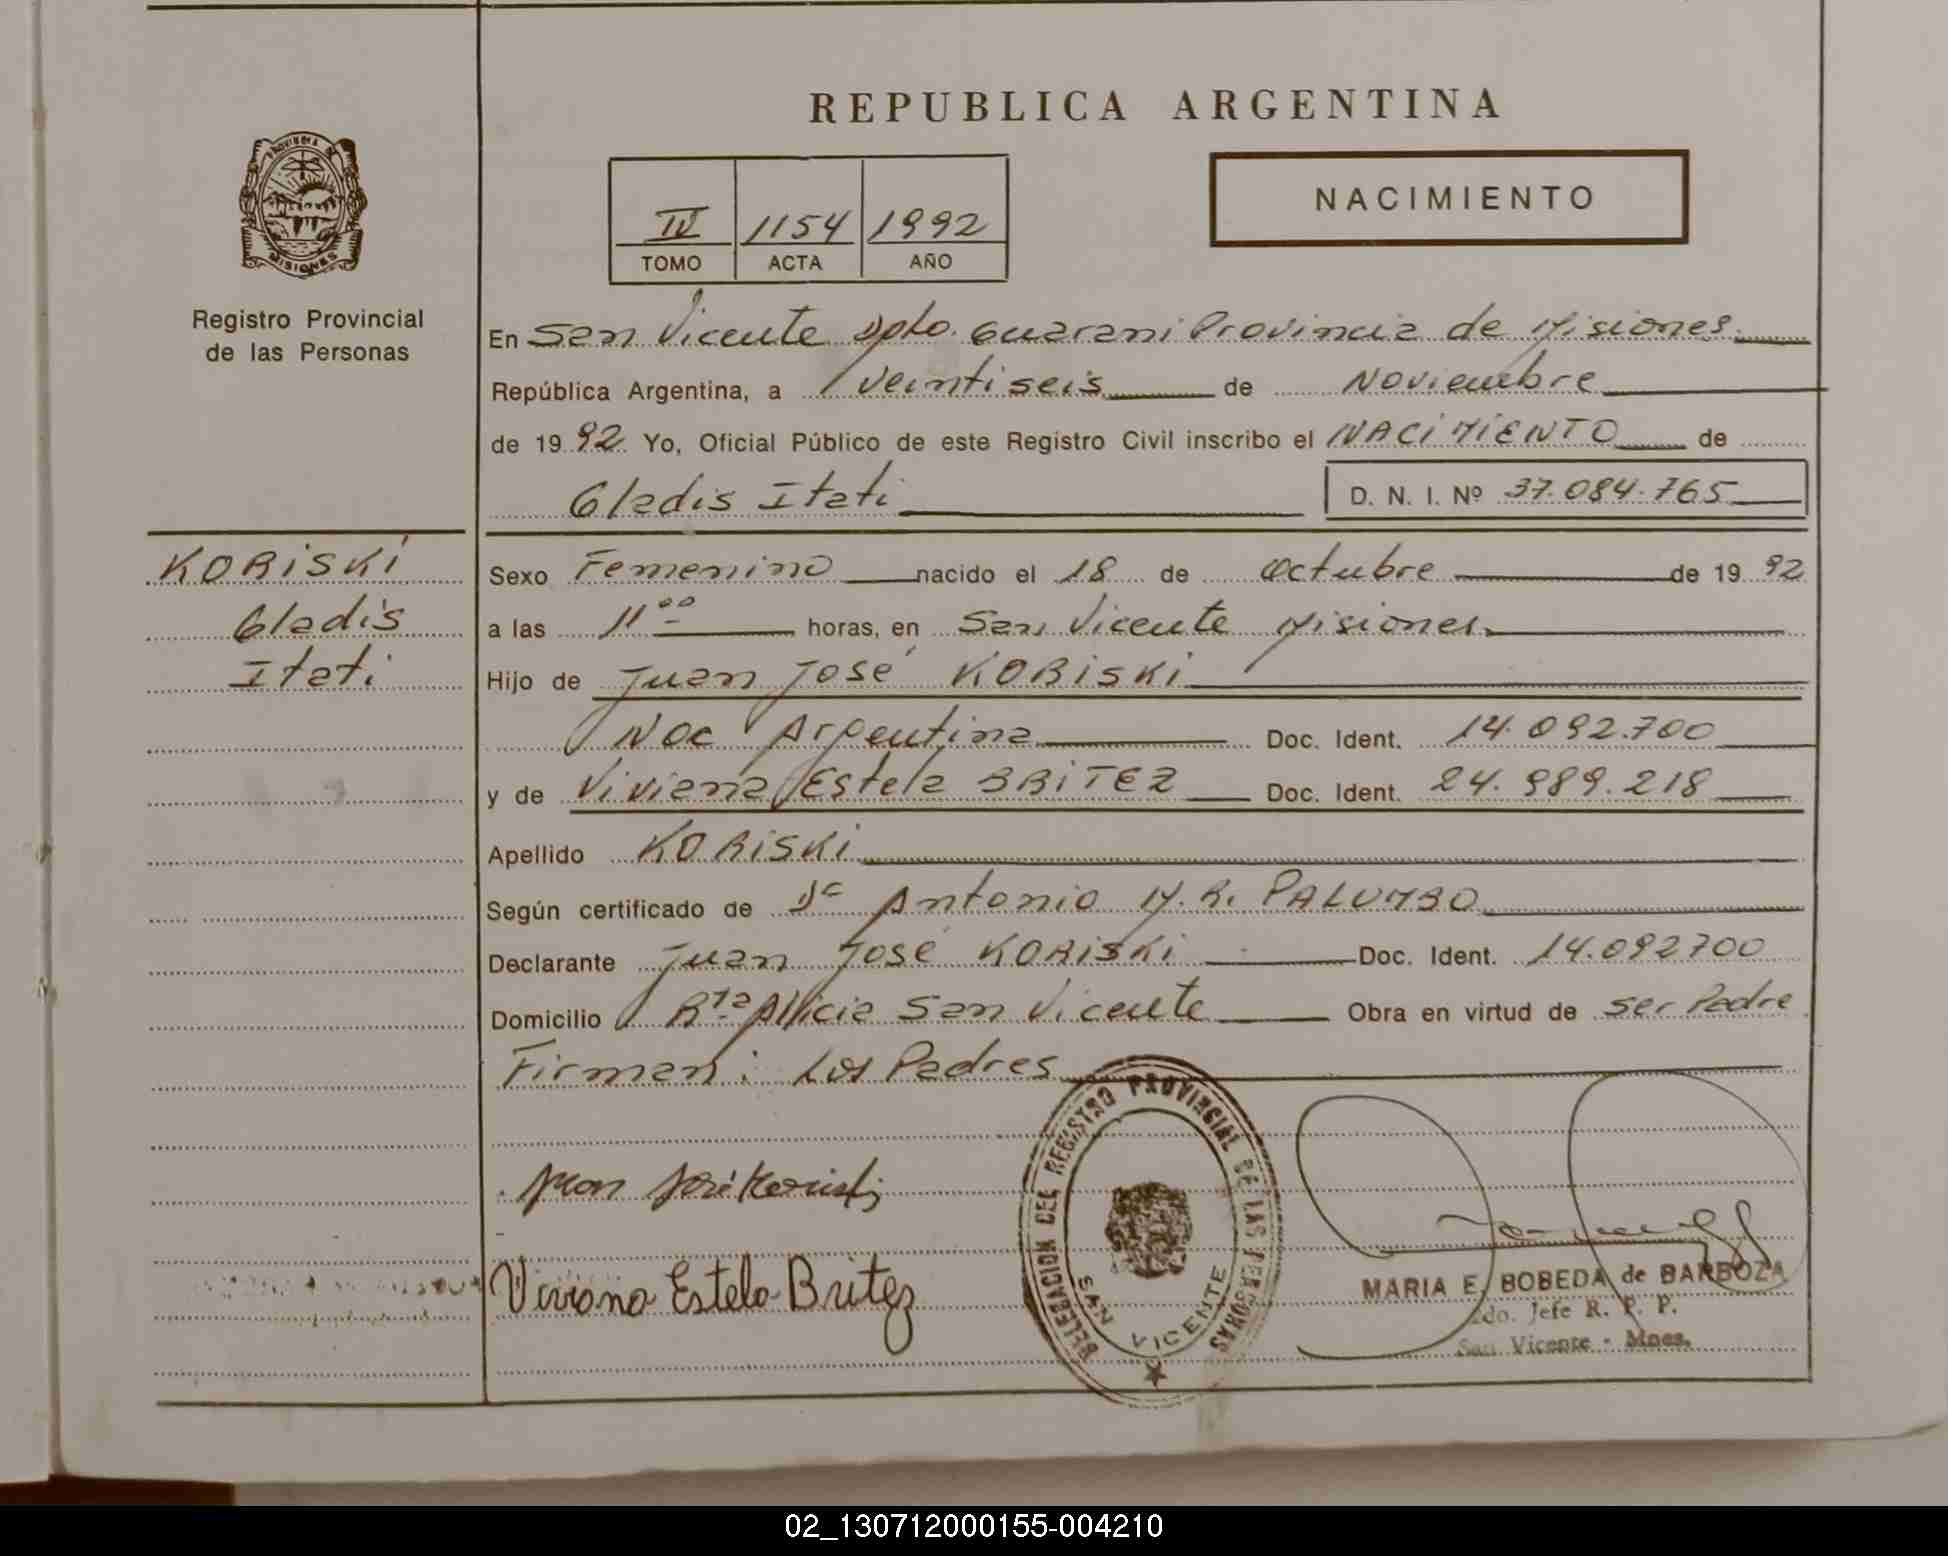 REPUBLICA ARGENTINA
PROVINCIA DE
MISIONES
Registro Provincial
de las Personas
IV 1154 1992
TOMO ACTA AÑO
NACIMIENTO
En San Vicente Dpto. Guarani Provincia de Misiones.
República Argentina, a Veintiseis de Noviembre
de 1992 Yo, Oficial Público de este Registro Civil inscribo el NACIMIENTO de
Gladis Itati D. N. I. Nº 37.084.765
KORISKI
Gladis
Itati
Sexo Femenino nacido el 18 de Octubre de 1992
a las 11 00 horas, en San Vicente Misiones.
Hijo de Juan José KORISKI
Nac Argentina Doc. Ident. 14.092.700
y de Viviana Estela BRITEZ Doc. Ident. 24.989.218
Apellido KORISKI
Según certificado de Dr Antonio M. R. PALUMBO
Declarante Juan José KORISKI Doc. Ident. 14.092700
Domicilio Rta Alicia San Vicente Obra en virtud de ser Padre
Firman: Los Padres
Juan José Koriski
Viviana Estela Britez
DELEGACION DEL REGISTRO PROVINCIAL DE LAS PERSONAS
SAN VICENTE
MARIA E. BOBEDA de BARBOZA
2do. Jefe R. P. P.
San Vicente - Mnes.
02_130712000155-004210